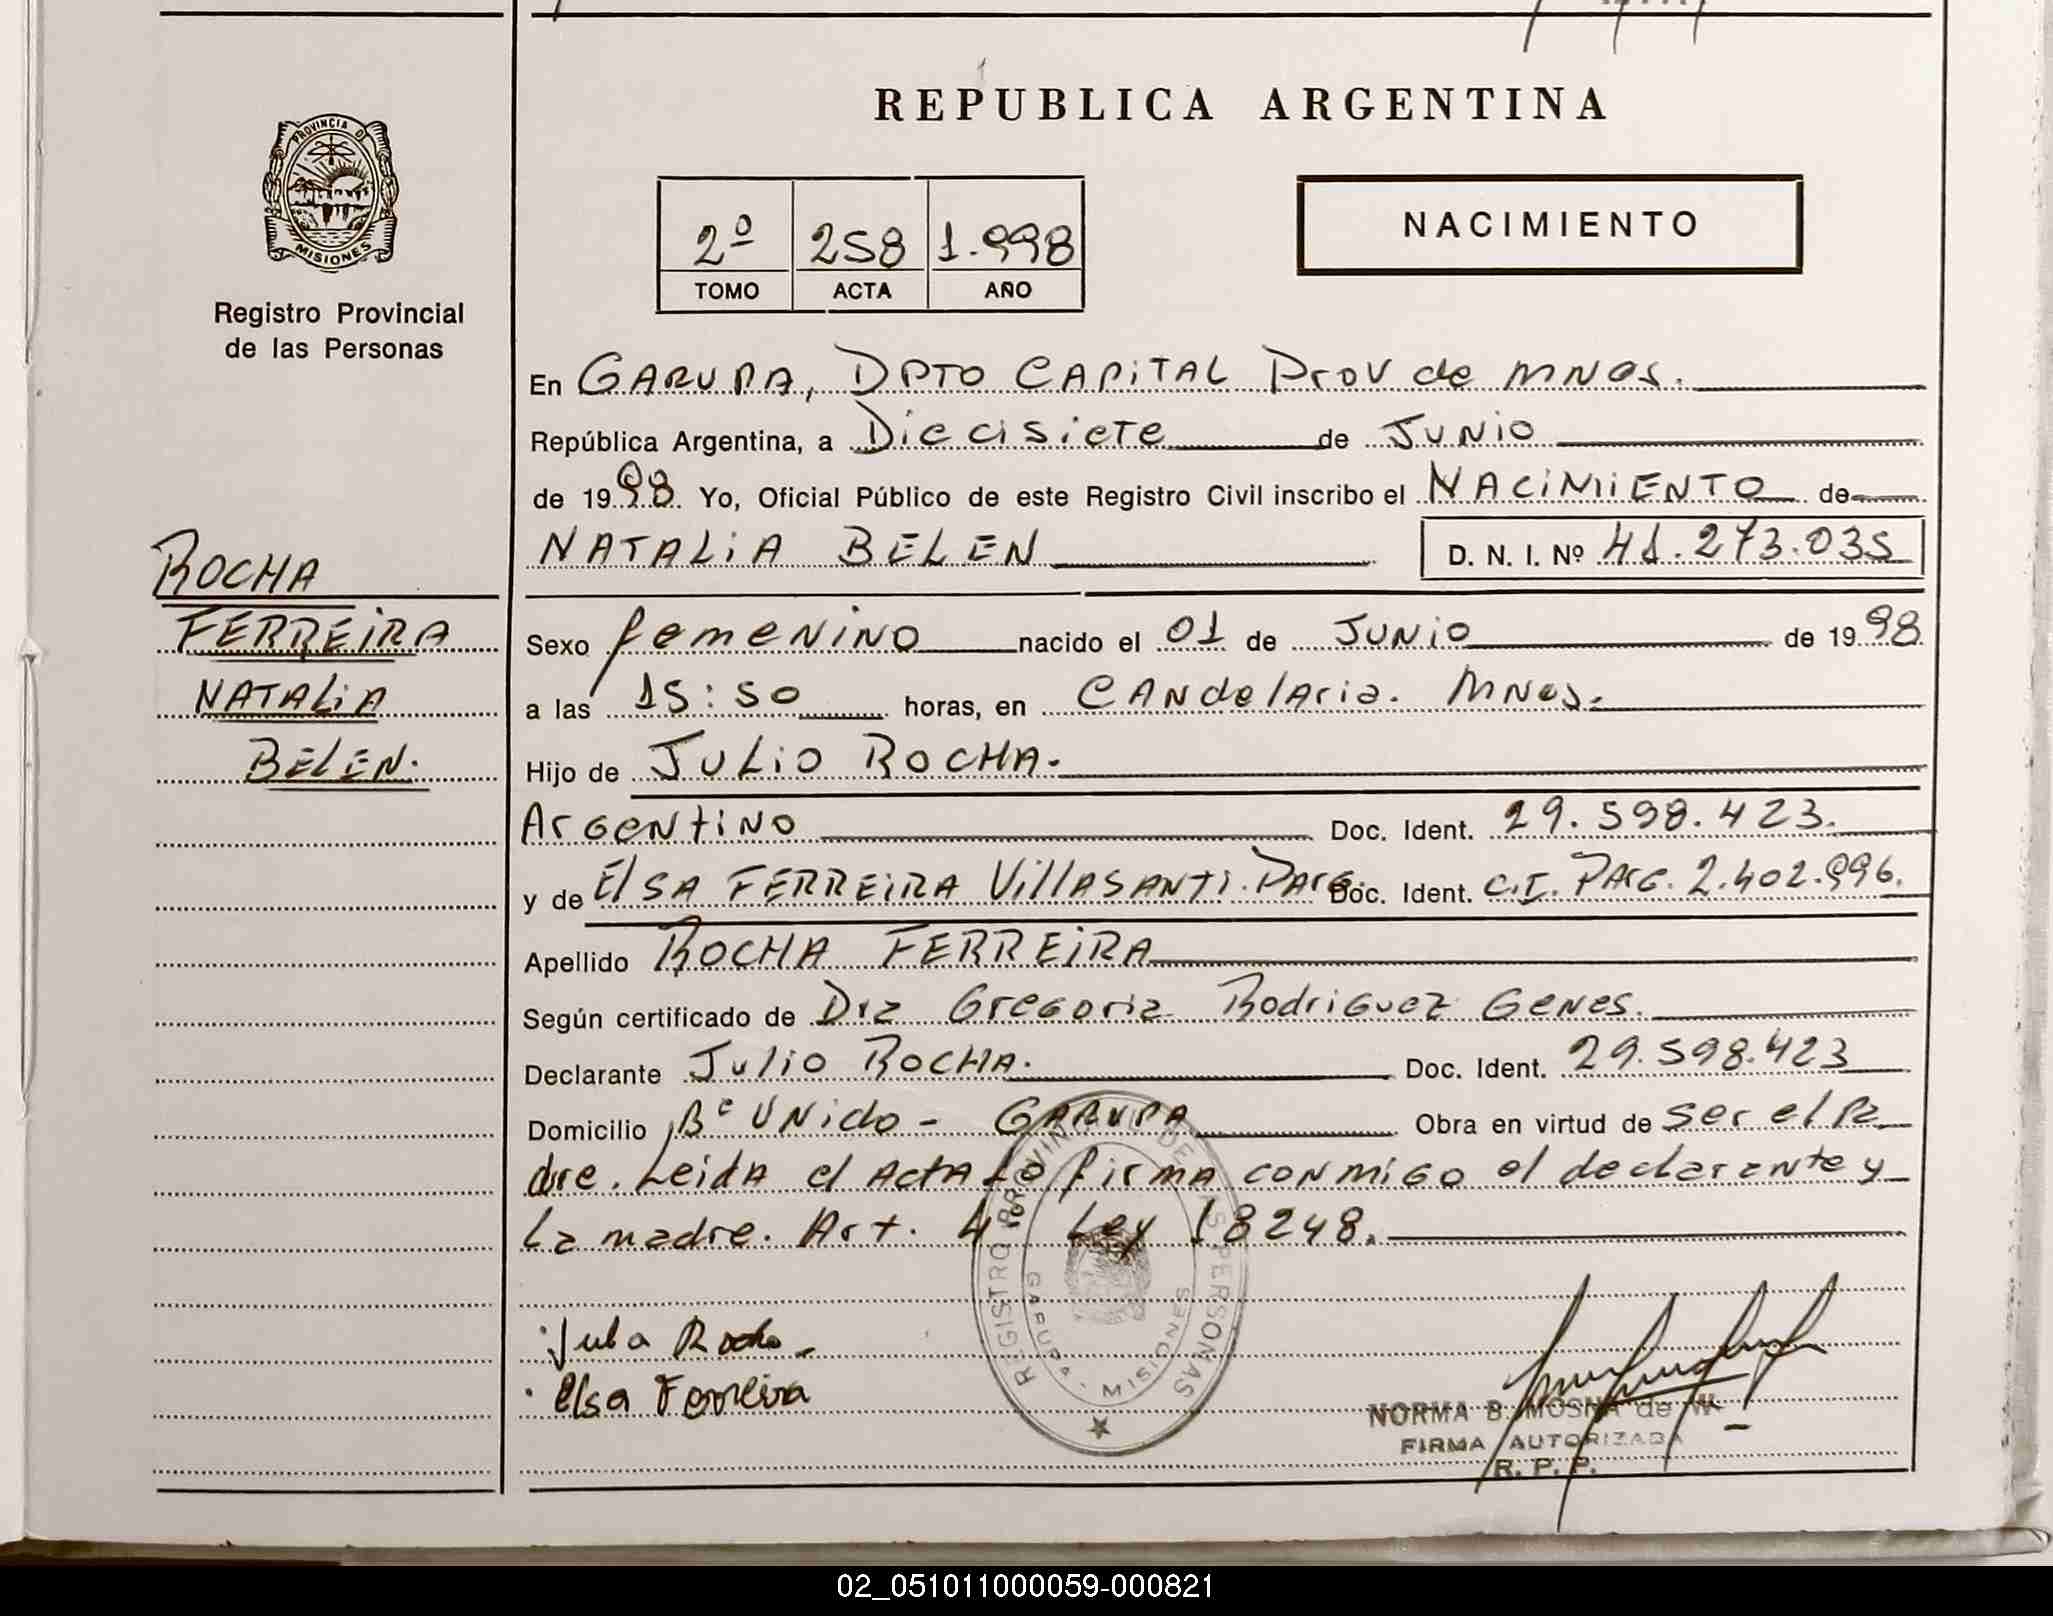 REPUBLICA ARGENTINA
PROVINCIA D
MISIONES
Registro Provincial
de las Personas
2º 258 1.998
TOMO ACTA AÑO
NACIMIENTO
En GARUPA, DPTO CAPITAL Prov de MNOS.
República Argentina, a Diecisiete de JUNIO
de 1998 Yo, Oficial Público de este Registro Civil inscribo el NACIMIENTO de
NATALIA BELEN D. N. I. Nº 41.273.035
ROCHA
FERREIRA
NATALIA
BELEN.
Sexo femenino nacido el 01 de JUNIO de 1998
a las 15:50 horas, en CANdelAria. MNes.
Hijo de JULIO ROCHA.
Argentino Doc. Ident. 29.598.423.
y de ElSA FERREIRA VillASANTI. Parg. Doc. Ident. C.I. PArG. 2.402.996.
Apellido ROCHA FERREIRA
Según certificado de Dra Gregoria Rodriguez Genes.
Declarante Julio ROCHA. Doc. Ident. 29.598.423
Domicilio Bº UNido - GARUPA Obra en virtud de ser el Pa
dre. Leida el ActA lo firma conmigo el declarante y
La madre. Art. 4º Ley 18248.
REGISTRO PROVINCIAL DE LAS PERSONAS
GARUPA - MISIONES
Julio Rocha
Elsa Ferreira
NORMA B. MOSNA de W.
FIRMA AUTORIZADA
R. P. P.
02_051011000059-000821